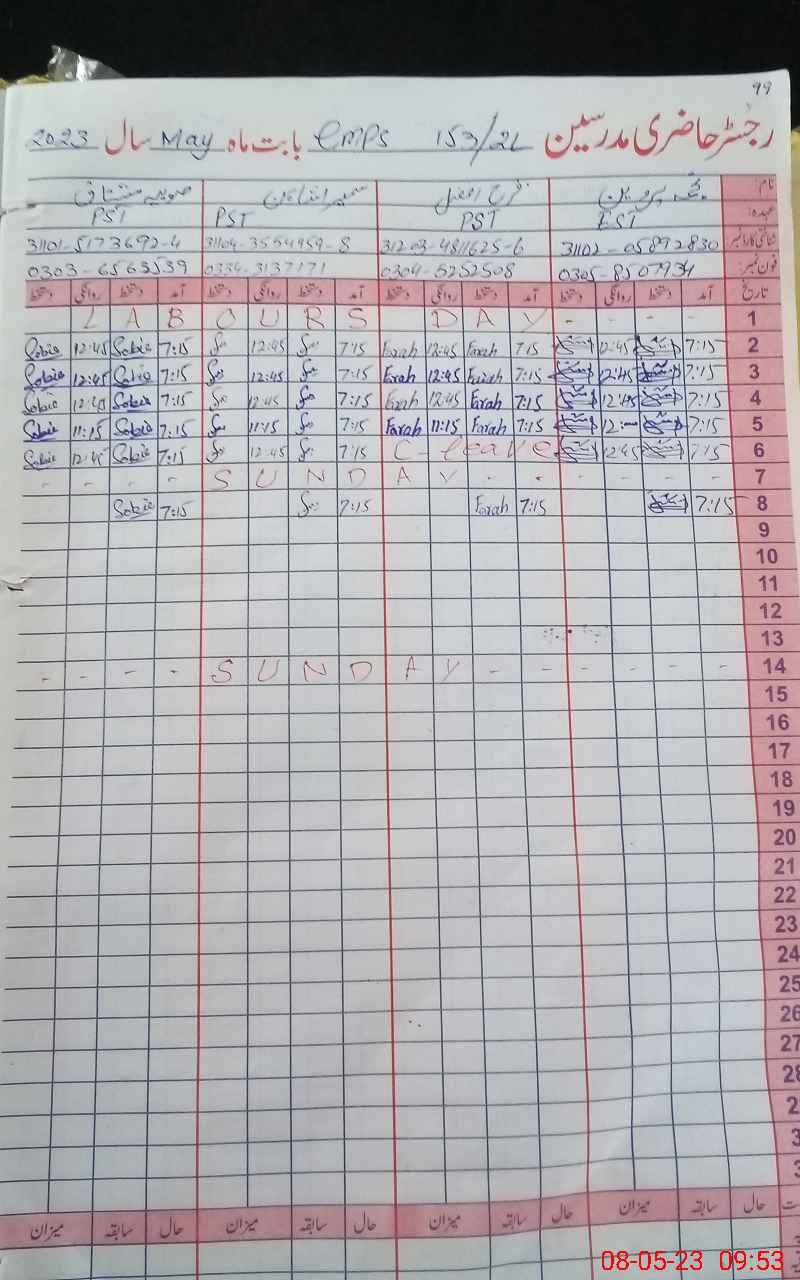 99
رجسٹر حاضری مدرسین 153/2L emps بابت ماہ May سال 2023
نام فرح افضل صوبیہ مشتاق
عہدہ: EST PST PST PST
شناختی کارڈ نمبر 31102-05892830 31203-4811625-6 31104-3554959-8 31101-5173692-4
فون نمبر: 0305-8507934 0304-6252508 0334-3137171 0303-6563539
تاریخ آمد دستخط روانگی دستخط آمد دستخط روانگی دستخط آمد دستخط روانگی دستخط آمد دستخط روانگی دستخط
1 - - - - LABOURS DAY
2 7:15 12:45 7:15 Farah 12:45 Farah 7:15 12:45 7:15 Sobia 12:45 Sobia
3 7:15 12:45 7:15 Farah 12:45 Farah 7:15 12:45 7:15 Sobia 12:45 Sobia
4 7:15 12:45 7:15 Farah 12:45 Farah 7:15 12:45 7:15 Sobia 12:45 Sobia
5 7:15 7:15 Farah 11:15 Farah 7:15 11:15 7:15 Sobia 11:15 Sobia
6 7:15 12:45 C-leave 7:15 12:45 7:15 Sobia 12:45 Sobia
7 - - - - SUNDAY - - - - - -
8 7:15 7:15 Farah 7:15 7:15 Sobia
9
10
11
12
13
14 - - - - SUNDAY - - - - - -
15
16
17
18
19
20
21
22
23
24
25
26
27
28
2
3
3
حال سابقہ میزان حال سابقہ میزان حال سابقہ میزان حال سابقہ میزان
08-05-23 09:53